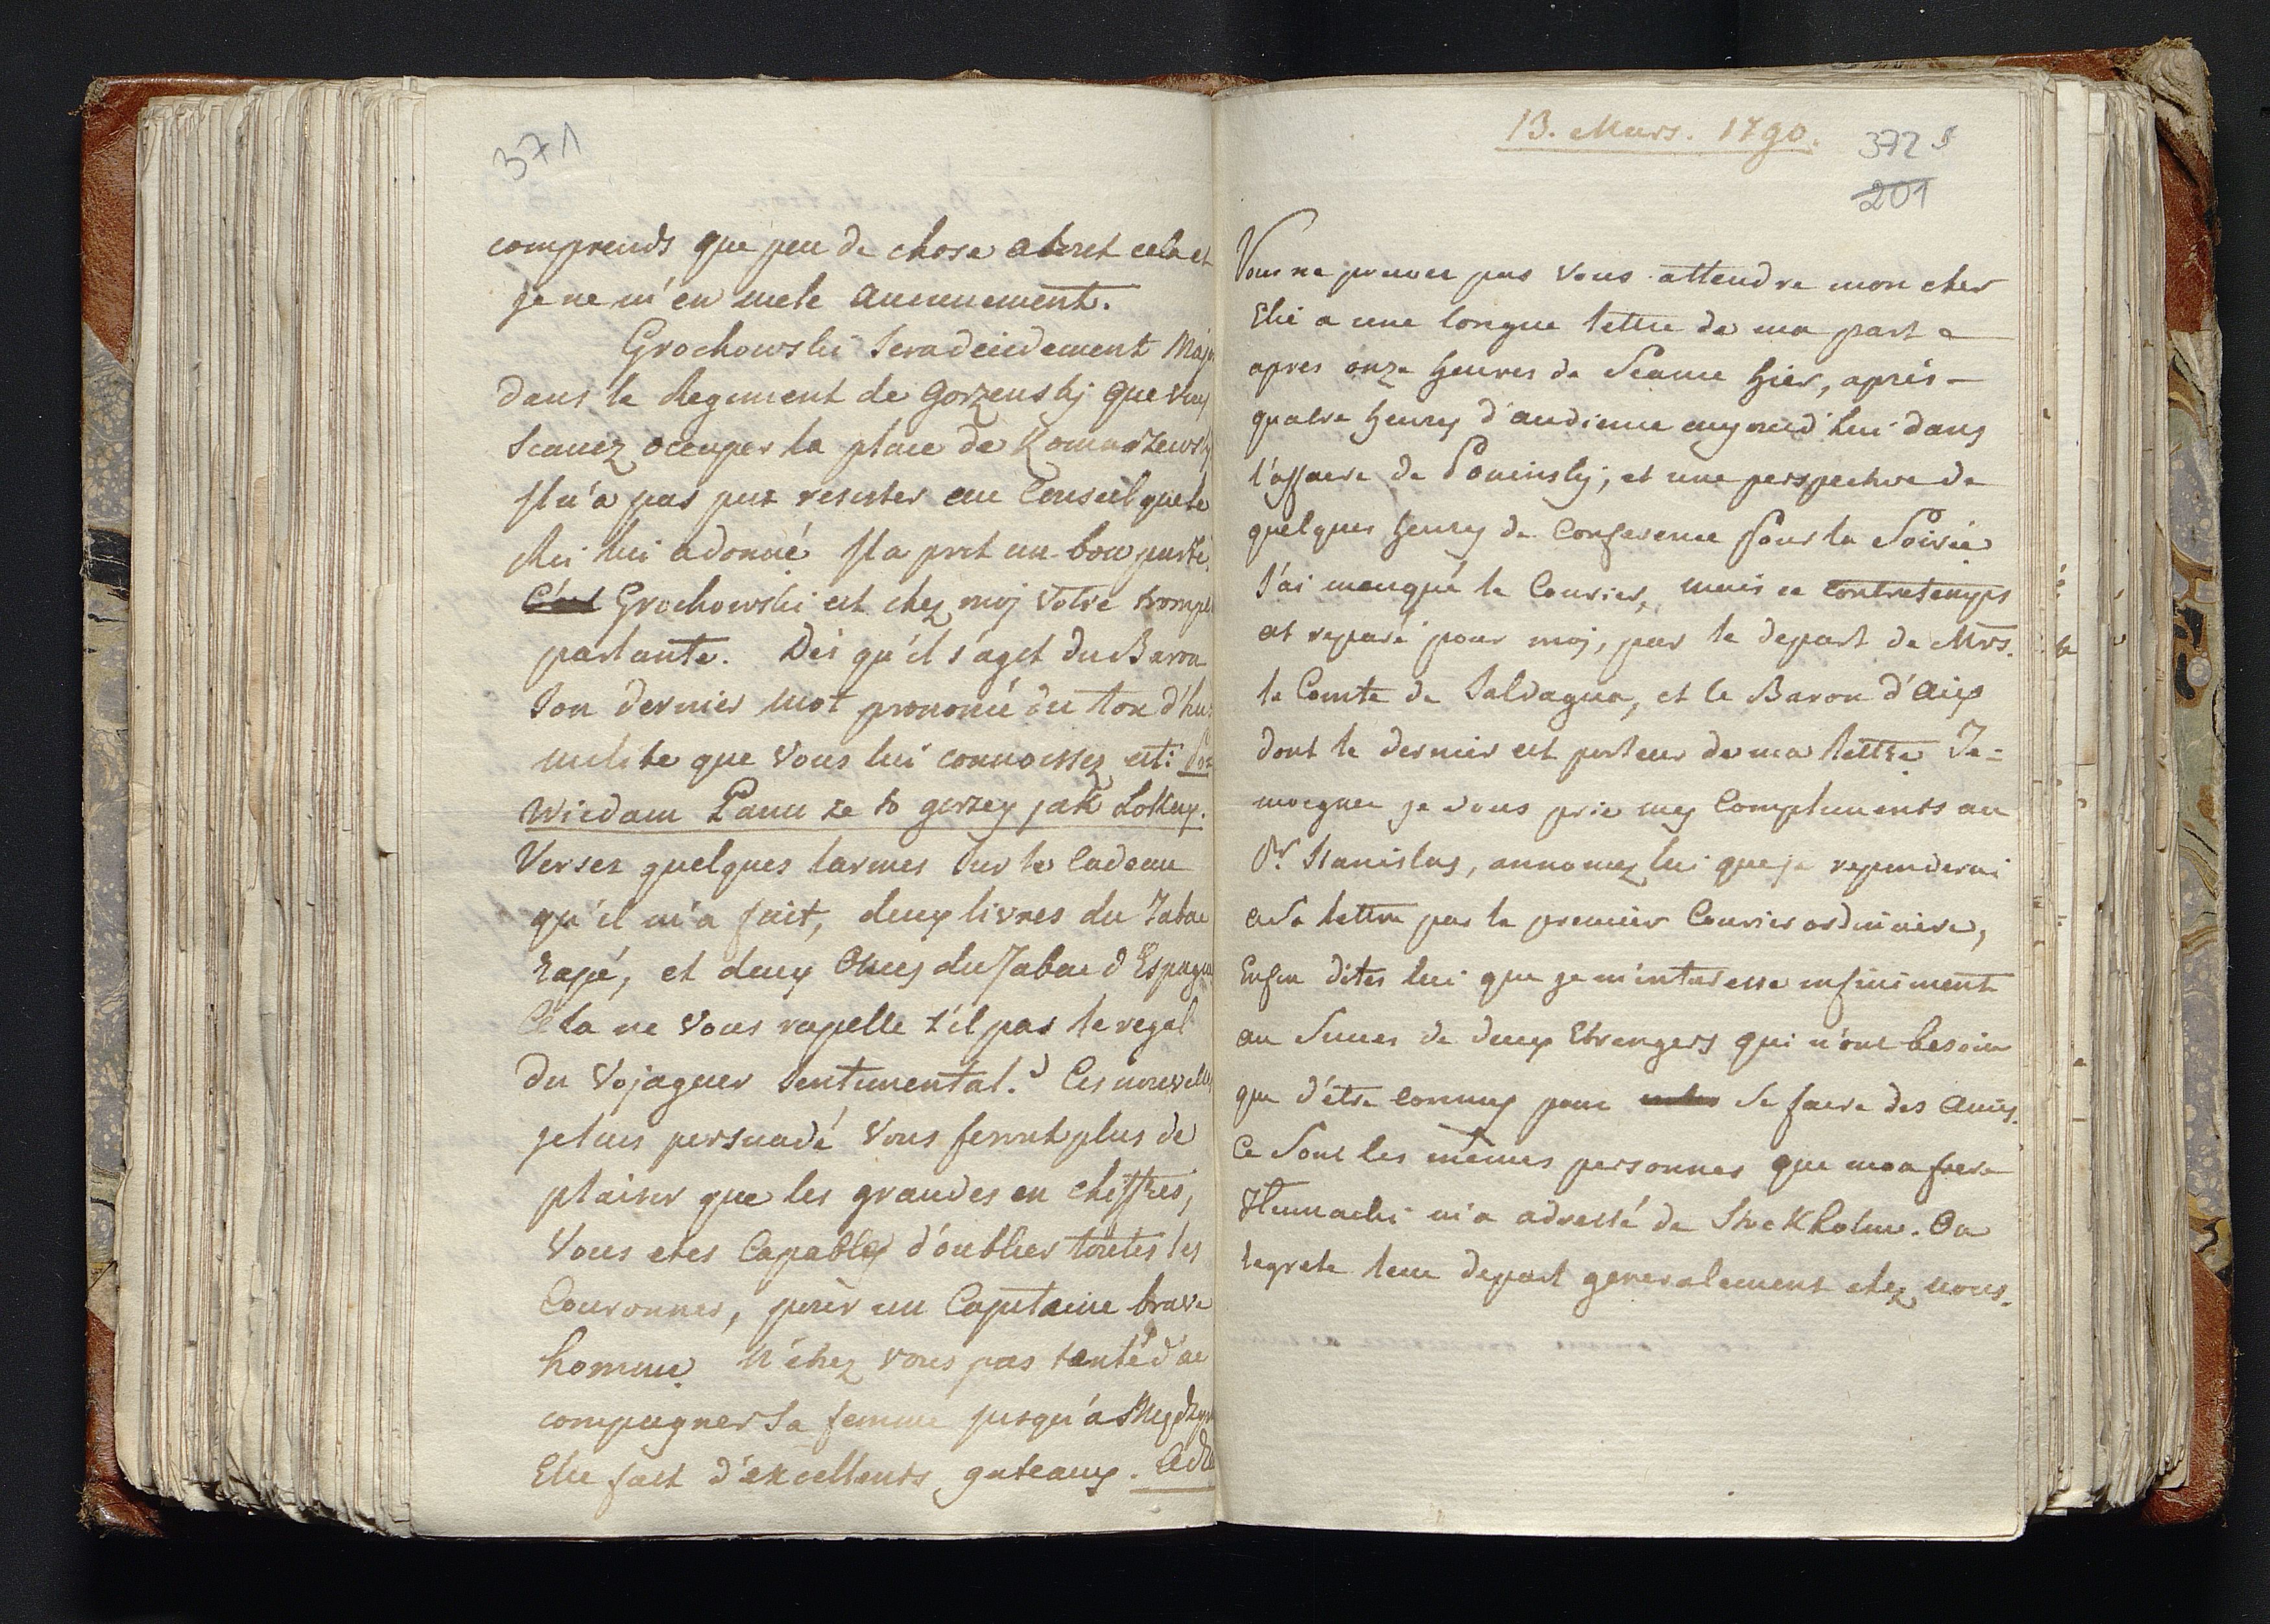 371
comprends que peu de chose a tout cela et
je ne m'en mele aucunement.
Grochowski sera decidement Major
dans le Regiment de Gorzenskj que vous
scavez occuper la place de Komarzewsky
Il n'a pas pus resister au Conseil que le
Roi lui a donné Il a prit un bon parti.
Grochowski est chez moj votre trompe
parlante. Dès qu'il s'agit du Baron
Son dernier mot prononcé du ton d'hu-
milite que vous lui connoissez est:
Wiedam Panu ze to gorzey jak Lokay.
Versez quelques larmes sur le Cadeau
qu'il m'a fait, deux livres du Tabac
rapé, et deux Onces du Tabac d'Espagne
Cela ne vous rapelle t'il pas le regal
du Vojageur Sentimental? Ces nouvelles
je suis persuadé vous feront plus de
plaisir que les grandes en chiffres,
Vous etes Capables d'oublier toutes les
Couronnes, pour un Capitaine brave
homme. N'étiez vous pas tenté d'ac
compagner sa femme jusqu'a
Elle fait d'excellents gateaux.
13. Mars. 1790.
372
201
Vous ne pouvez pas vous attendre mon cher
Elie a une longue lettre de ma part
apres onze heures de Seance hier, après
quatre heures d'audience aujourd'hui dans
l'affaire de Poninskj; et une perspective de
quelques heures de Conference pour la Soirée
J'ai manqué le Courier, mais ce contretemps
est reparé pour moj, par le depart de Mrs.
le Comte de Saldagna, et le Baron d'
dont le dernier est porteur de ma lettre Te=
moignez je vous prie mes Compliments au
Pr. Stanislas, annoncez lui que je reponderai
a Sa lettre par le premier Courier ordinaire,
Enfin dites lui que je m'interesse infiniment
au Succes de deux Etrangers qui n'ont besoin
que d'être connus pour se faire des Amis.
Ce sont les mêmes personnes que mon frere
m'a adressé de Stockholm. On
regrete leur depart generalement chez nous.